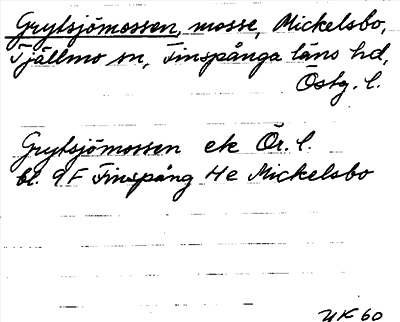 Grytsjömossen, mosse, Mickelsbo,
Tjällmo sn, Finspånga läns hd,
Östg. l.
Grytsjömossen ek Ör. l.
bl. 9 F Finspång 4e Mickelsbo
UK 60